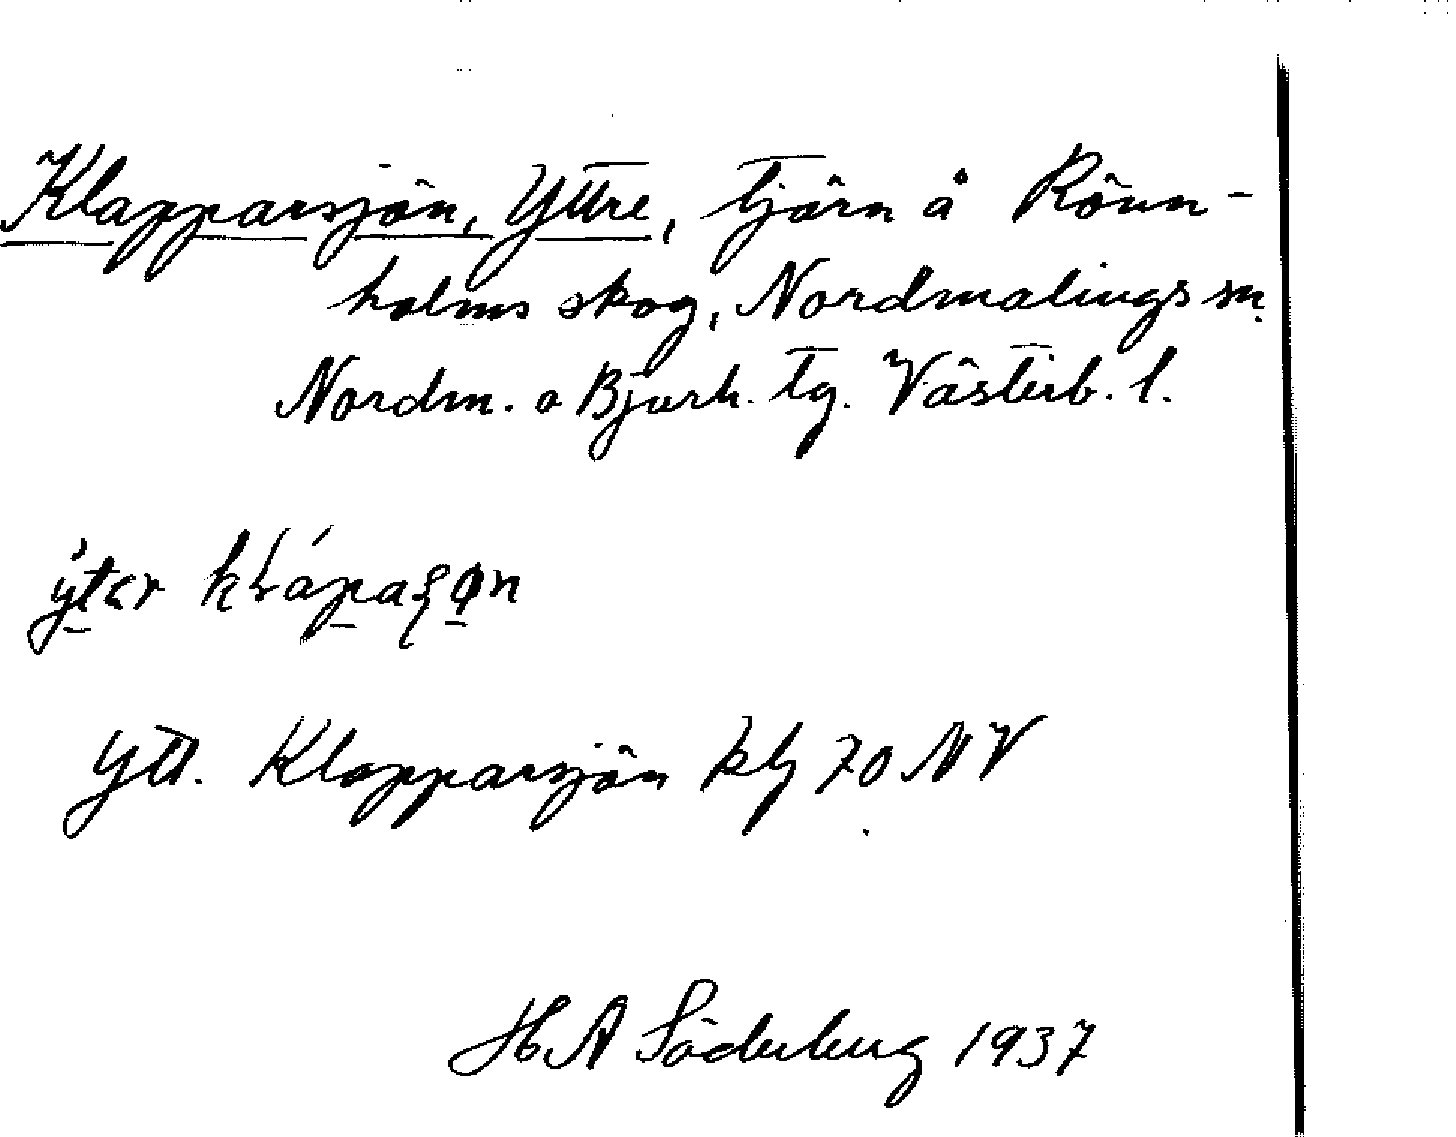 Klapparsjön, Yttre, tjärn å Rönn-
holms skog, Nordmalings sn.
Nordm. o Bjurh. tg. Västerb. l.
ýtər
Ytt. Klapparsjön kbl 70 NV
H A Söderberg 1937